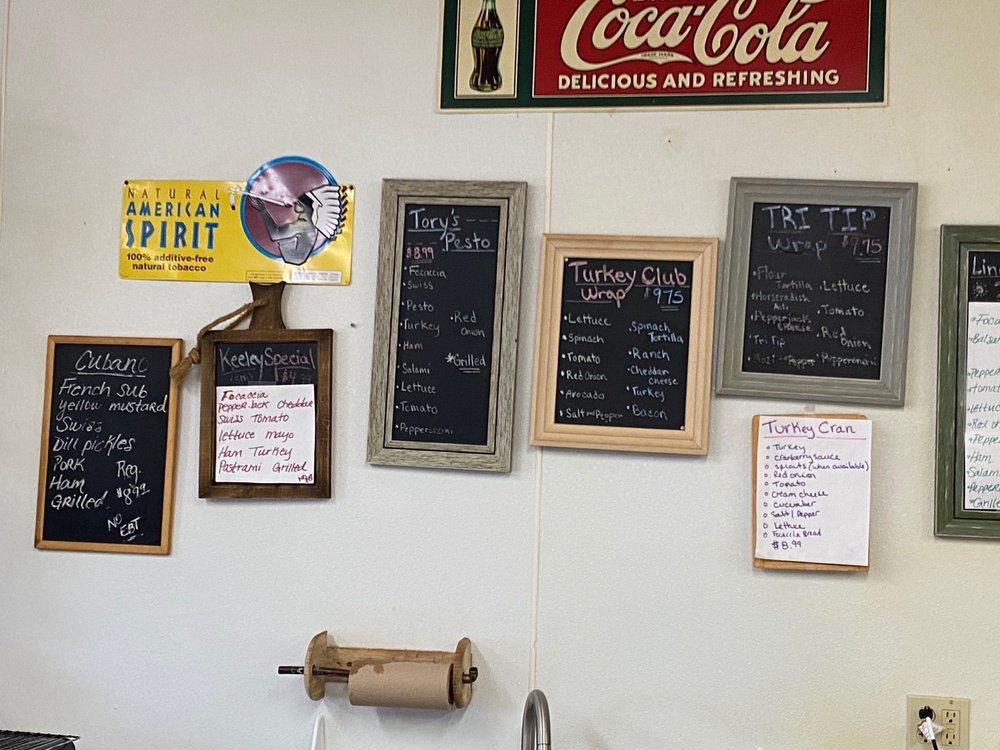 Coca-Cola
DELICIOUS AND REFRESHING
NATURAL
AMERICAN
SPIRIT
100% additive-free
natural tobacco
Cubano
French Sub
yellow mustard
Swiss
Dill pickles
Pork
Ham
Grilled
Reg.
$8.99
NO
EBT
Keeley Special
Focaccia
Pepper Jack Cheddar
Swiss Tomato
lettuce mayo
Ham Turkey
Pastrami Grilled
Tory's
Pesto
$8.99
Focaccia
Swiss
Pesto
Turkey
Ham
Salami
Lettuce
Tomato
Pepperoncini
Red
Onion
*Grilled
Turkey Club
Wrap $9.75
Lettuce
Spinach
Tomato
Red Onion
Avocado
Salt and Pepper
Spinach
Tortilla
Ranch
Cheddar
cheese
Turkey
Bacon
TRI TIP
Wrap $9.75
Flour
Tortilla
Horseradish
Pepperjack
cheese
Tri Tip
Salt Pepper
Lettuce
Tomato
Red
Onion
Turkey Cran
Turkey
Cranberry sauce
sprouts (when available)
Red onion
Tomato
Cream cheese
Cucumber
Salt / Pepper
Lettuce
Focaccia Bread
$8.99
Lin
Foca
Balsa
Peppe
lettuc
Red o
Pepper
Ham
Salam
Pepper
Grille